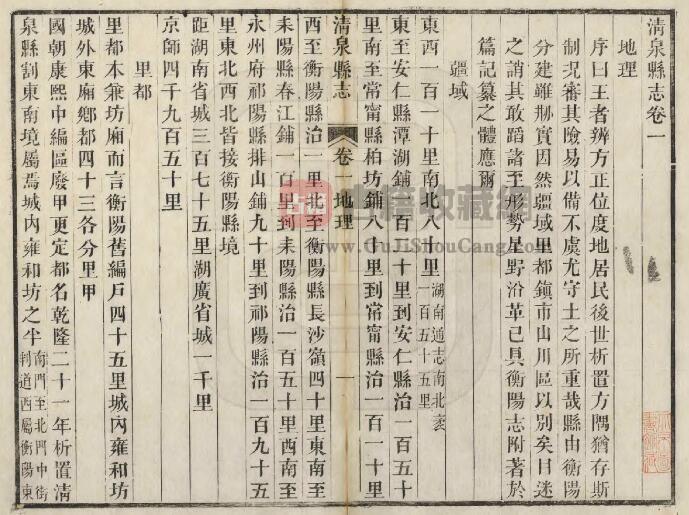 清泉縣志卷一
地理
序曰王者辨方正位度地居民後世析置方隅猶存斯
制況審其險易以備不虞尤守土之所重哉縣由衡陽
分建雖剏實因然疆域里都鎮市山川區以別矣目迷
之誚其敢蹈諸至形勢星野沿革已具衡陽志附著於
篇記纂之體應爾
疆域
東西一百一十里南北八十里湖南通志南北袤一百五十五里
東至安仁縣潭湖鋪一百一十里到安仁縣治一百五十
里南至常甯縣柏坊鋪八十里到常甯縣治一百一十里
清泉縣志
卷一地理
一
西至衡陽縣治一里北至衡陽縣長沙嶺四十里東南至
耒陽縣春江鋪一百里到耒陽縣治一百五十里西南至
永州府祁陽縣排山鋪九十里到祁陽縣治一百九十五
里東北西北皆接衡陽縣境
距湖南省城三百七十五里湖廣省城一千里
京師四千九百五十里
里都
里都本兼坊廂而言衡陽舊編戶四十五里城內雍和坊
城外東廂鄉都四十三各分里甲
國朝康熙中編區廢甲更定都名乾隆二十一年析置清
泉縣割東南境屬焉城內雍和坊之半南門至北門中街判道西屬衡陽東
书籍收藏网
www.GuJiShouCang.com